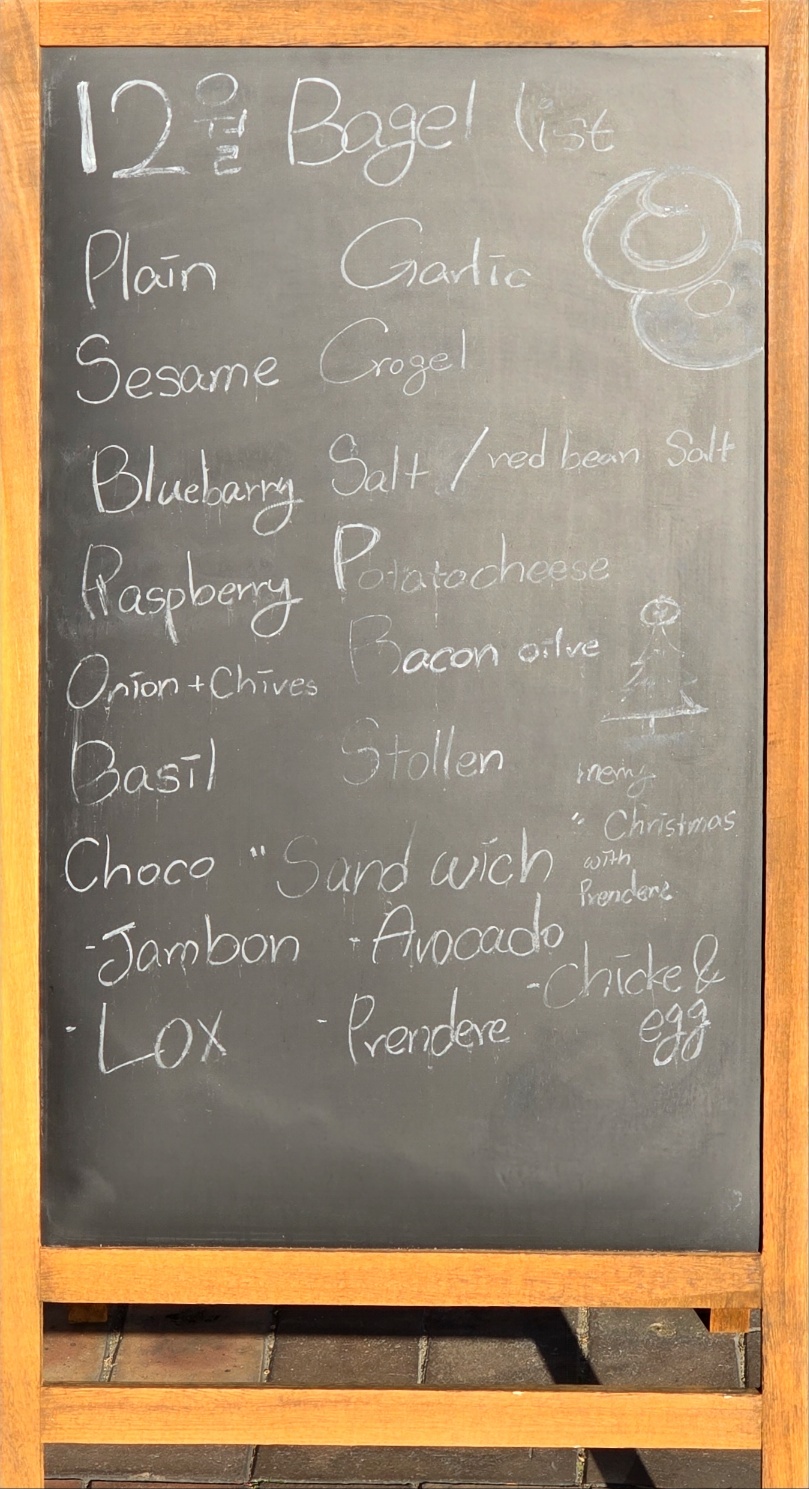 12월 Bagel list
Plain Garlic
Sesame Crogel
Bluebarry Salt / red bean Salt
Raspberry Potatocheese
Onion + Chives Bacon oilve
Basil Stollen
merry
" Christmas
with
Prendere
Choco "Sandwich
- Jambon - Avocado
- Chicke &
egg
- Lox - Prendere